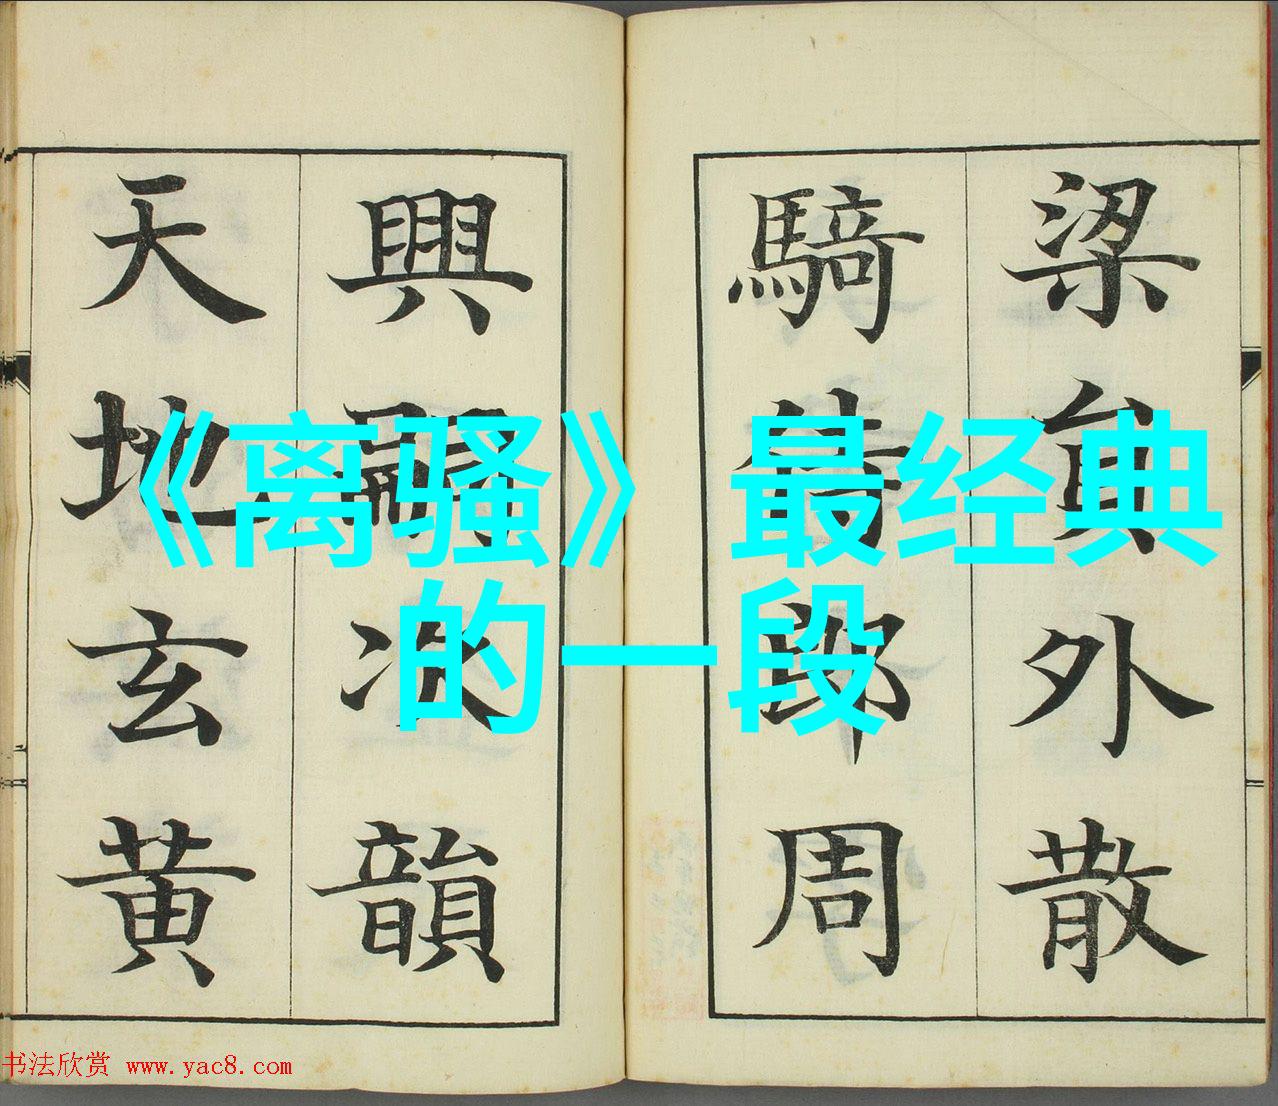 梁貟外散
騎侍郎周
興嗣次韻
天地玄黃
《离骚》最经典
的一段
书法欣赏 www.yac8.com